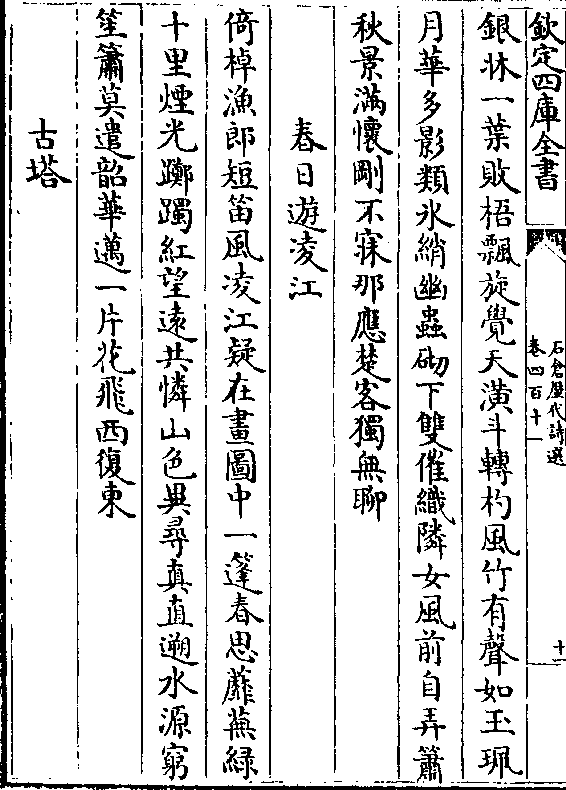 欽定四庫全書
石倉歷代詩選
卷四百十一
十
銀牀一葉敗梧飄旋覺天潢斗轉杓風竹有聲如玉珮
月華多影類氷綃幽蟲砌下雙催織隣女風前自弄簫
秋景滿懷剛不寐那應楚客獨無聊
春日遊凌江
倚棹漁郎短笛風凌江疑在畫圖中一篷春思蘼蕪緑
十里煙光躑躅紅望遠共憐山色異尋真直遡水源窮
笙簫莫遣韶華邁一片花飛西復東
古塔